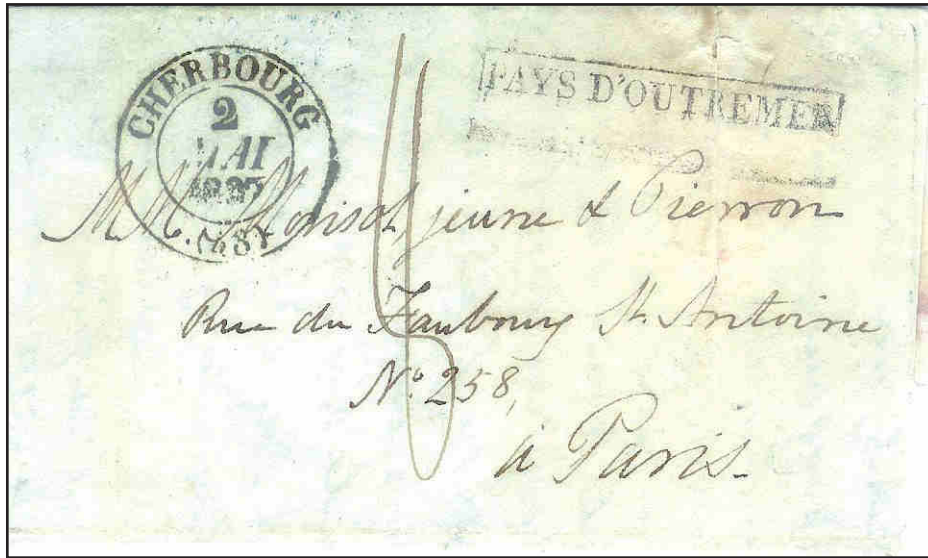 CHERBOURG
2
MAI
1837
(48)
PAYS D'OUTREMER
MM. Morisot, jeune & Pierron
Rue du Faubourg St. Antoine
No. 258,
à Paris.